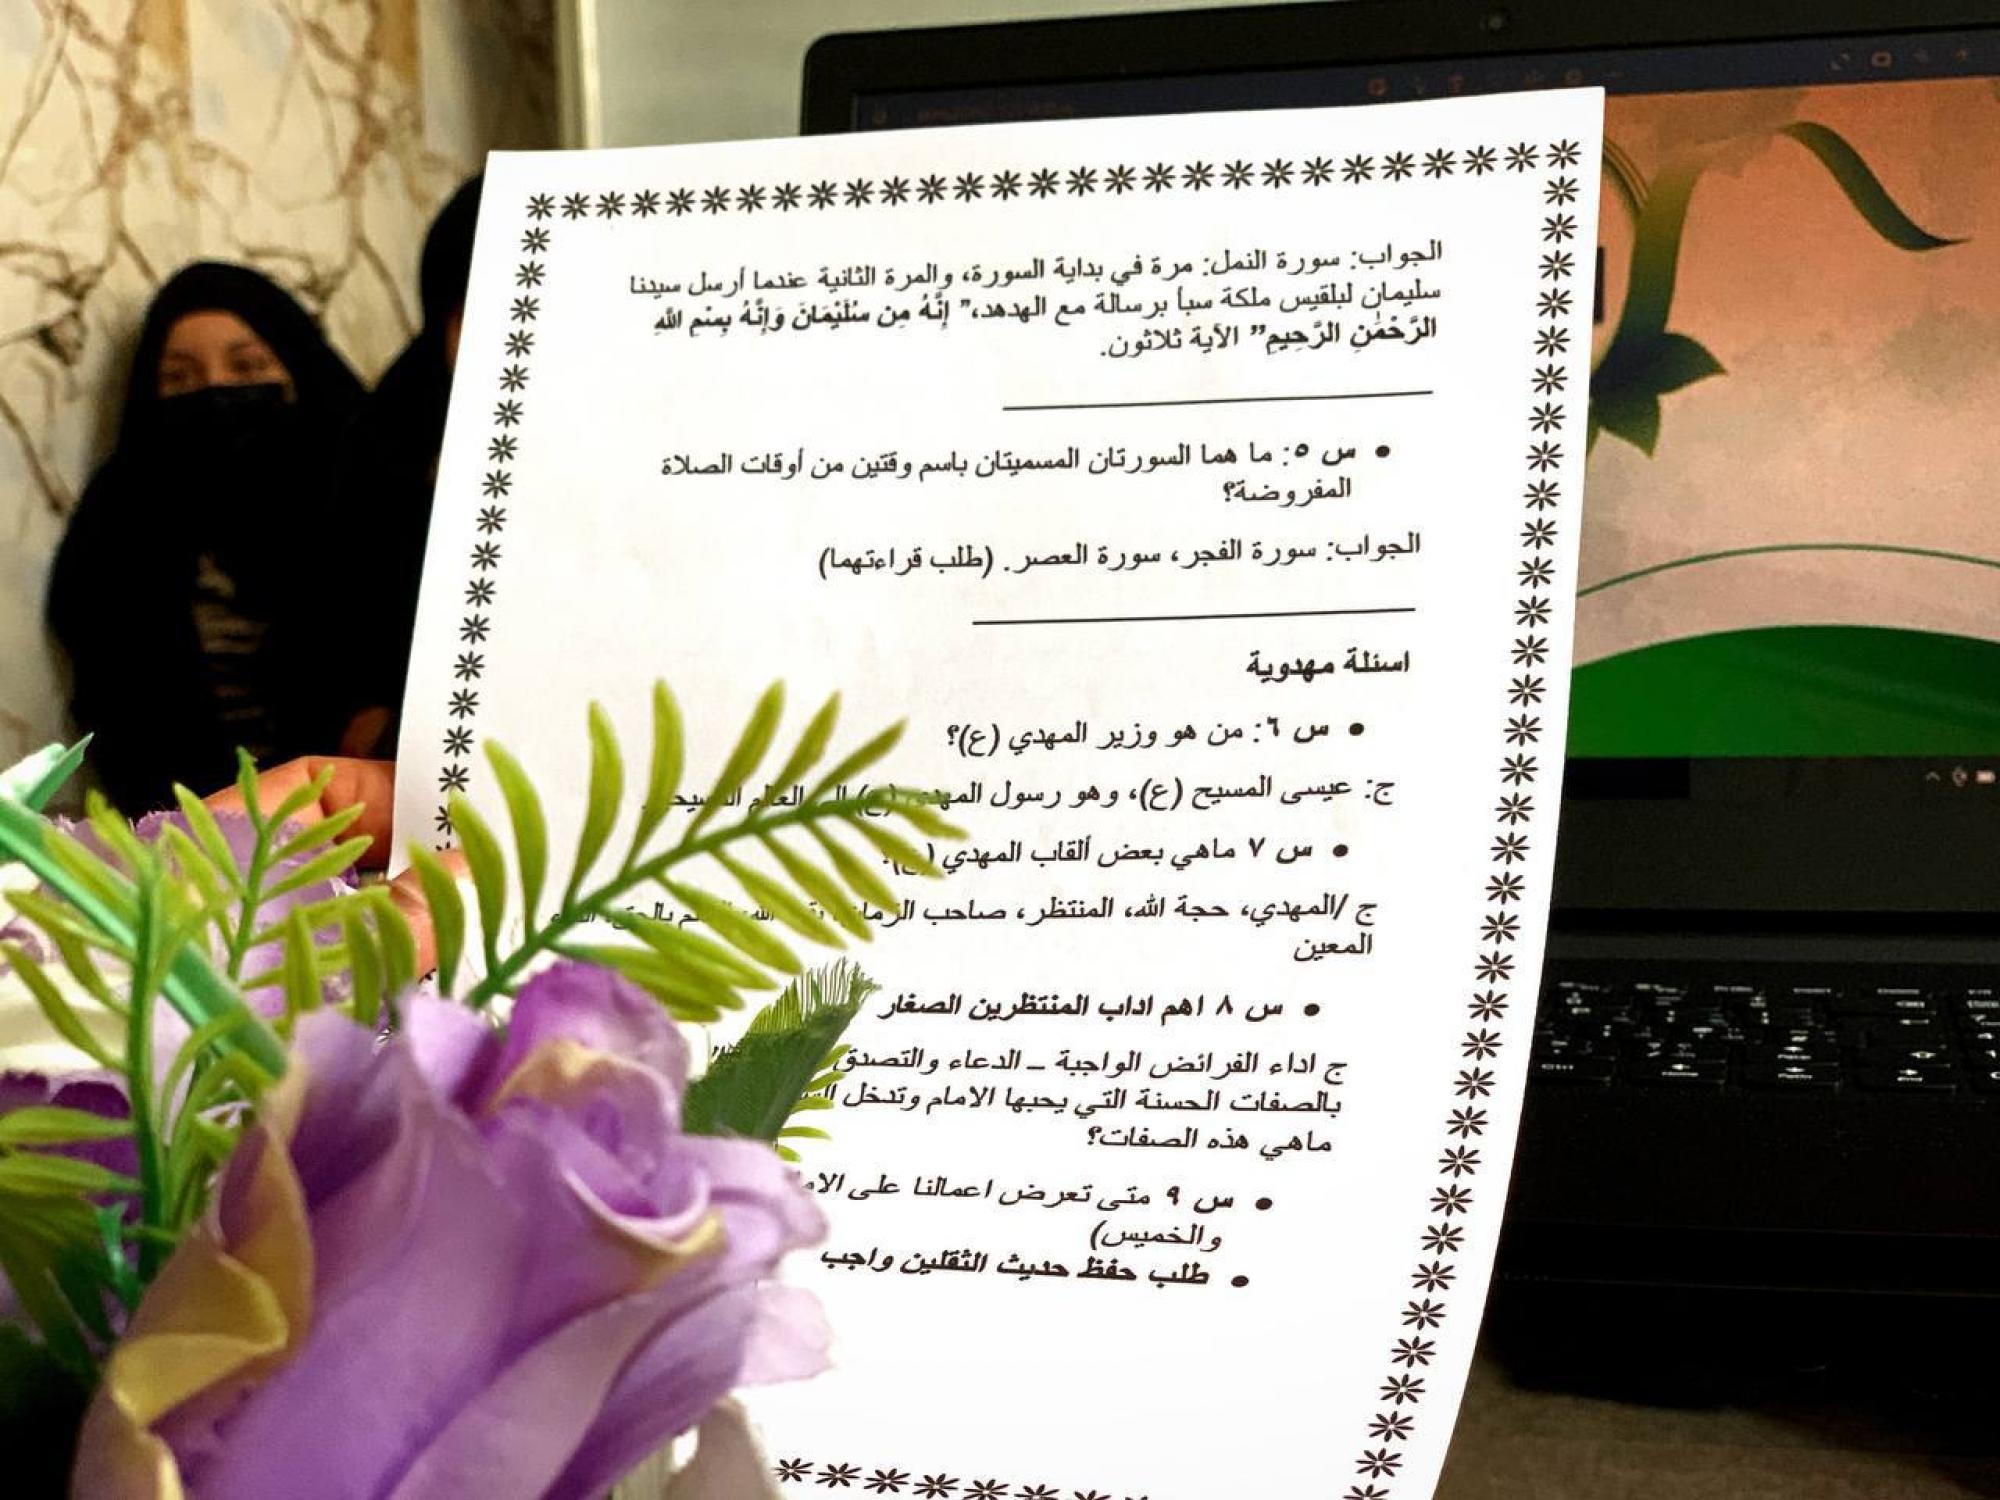 الجواب: سورة النمل: مرة في بداية السورة، والمرة الثانية عندما أرسل سيدنا
سليمان لبلقيس ملكة سبأ برسالة مع الهدهد،” إِنَّهُ مِن سُلَيْمَانَ وَإِنَّهُ بِسْمِ اللَّهِ
الرَّحْمَٰنِ الرَّحِيمِ” الآية ثلاثون.
• س ٥: ما هما السورتان المسميتان باسم وقتين من أوقات الصلاة
المفروضة؟
الجواب: سورة الفجر، سورة العصر. (طلب قراءتهما)
اسئلة مهدوية
• س ٦: من هو وزير المهدي (ع)؟
ج: عيسى المسيح (ع)، وهو رسول المهدي (ع) الى العالم
• س ٧ ماهي بعض ألقاب المهدي
ج /المهدي، حجة الله، المنتظر، صاحب الزمان،
المعين
• س ٨ اهم اداب المنتظرين الصغار
ج اداء الفرائض الواجبة – الدعاء والتصدق
بالصفات الحسنة التي يحبها الامام وتدخل
ماهي هذه الصفات؟
• س ٩ متى تعرض اعمالنا على
والخميس)
• طلب حفظ حديث الثقلين واجب